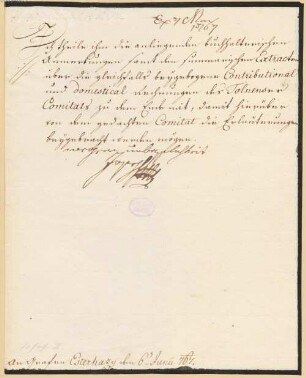 Ich theile ihm die anliegenden buchhalterischen
Anmerkungen samt den summarischen Extracten
über die gleichfalls beygebogene Contributional
und Domestical Rechnungen des Tolnenser
Comitats zu dem Ende mit, damit hierüber
von dem gedachten Comitat die Erläuterungen
beygebracht werden mögen.
Joseph
An Grafen Esterhazy den 6t Junii 767.